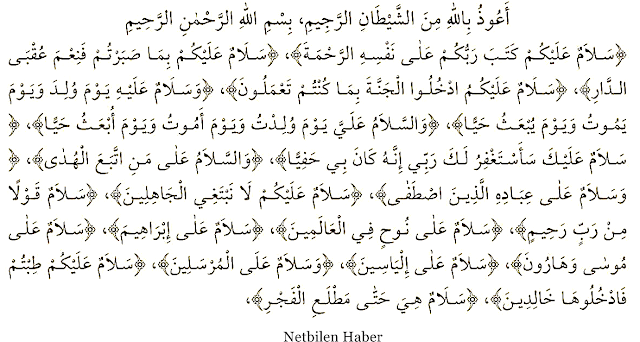 أَعُوذُ بِاللهِ مِنَ الشَّيْطَانِ الرَّجِيمِ، بِسْمِ اللهِ الرَّحْمٰنِ الرَّحِيمِ
﴿سَلاَمٌ عَلَيْكُمْ كَتَبَ رَبُّكُمْ عَلٰى نَفْسِهِ الرَّحْمَةَ﴾، ﴿سَلاَمٌ عَلَيْكُمْ بِمَا صَبَرْتُمْ فَنِعْمَ عُقْبَى
الدَّارِ﴾، ﴿سَلاَمٌ عَلَيْكُمُ ادْخُلُوا الْجَنَّةَ بِمَا كُنْتُمْ تَعْمَلُونَ﴾، ﴿وَسَلاَمٌ عَلَيْهِ يَوْمَ وُلِدَ وَيَوْمَ
يَمُوتُ وَيَوْمَ يُبْعَثُ حَيًّا﴾، ﴿وَالسَّلاَمُ عَلَيَّ يَوْمَ وُلِدْتُ وَيَوْمَ أَمُوتُ وَيَوْمَ أُبْعَثُ حَيًّا﴾، ﴿
سَلاَمٌ عَلَيْكَ سَأَسْتَغْفِرُ لَكَ رَبِّي إِنَّهُ كَانَ بِي حَفِيًّا﴾، ﴿وَالسَّلاَمُ عَلٰى مَنِ اتَّبَعَ الْهُدٰى﴾، ﴿
وَسَلاَمٌ عَلٰى عِبَادِهِ الَّذِينَ اصْطَفٰى﴾، ﴿سَلاَمٌ عَلَيْكُمْ لَا نَبْتَغِي الْجَاهِلِينَ﴾، ﴿سَلاَمٌ قَوْلًا
مِنْ رَبٍّ رَحِيمٍ﴾، ﴿سَلاَمٌ عَلٰى نُوحٍ فِي الْعَالَمِينَ﴾، ﴿سَلاَمٌ عَلٰى إِبْرَاهِيمَ﴾، ﴿سَلاَمٌ عَلٰى
مُوسٰى وَهَارُونَ﴾، ﴿سَلاَمٌ عَلٰى إِلْيَاسِينَ﴾، ﴿وَسَلاَمٌ عَلَى الْمُرْسَلِينَ﴾، ﴿سَلاَمٌ عَلَيْكُمْ طِبْتُمْ
فَادْخُلُوهَا خَالِدِينَ﴾، ﴿سَلاَمٌ هِيَ حَتّٰى مَطْلَعِ الْفَجْرِ﴾،
Netbilen Haber